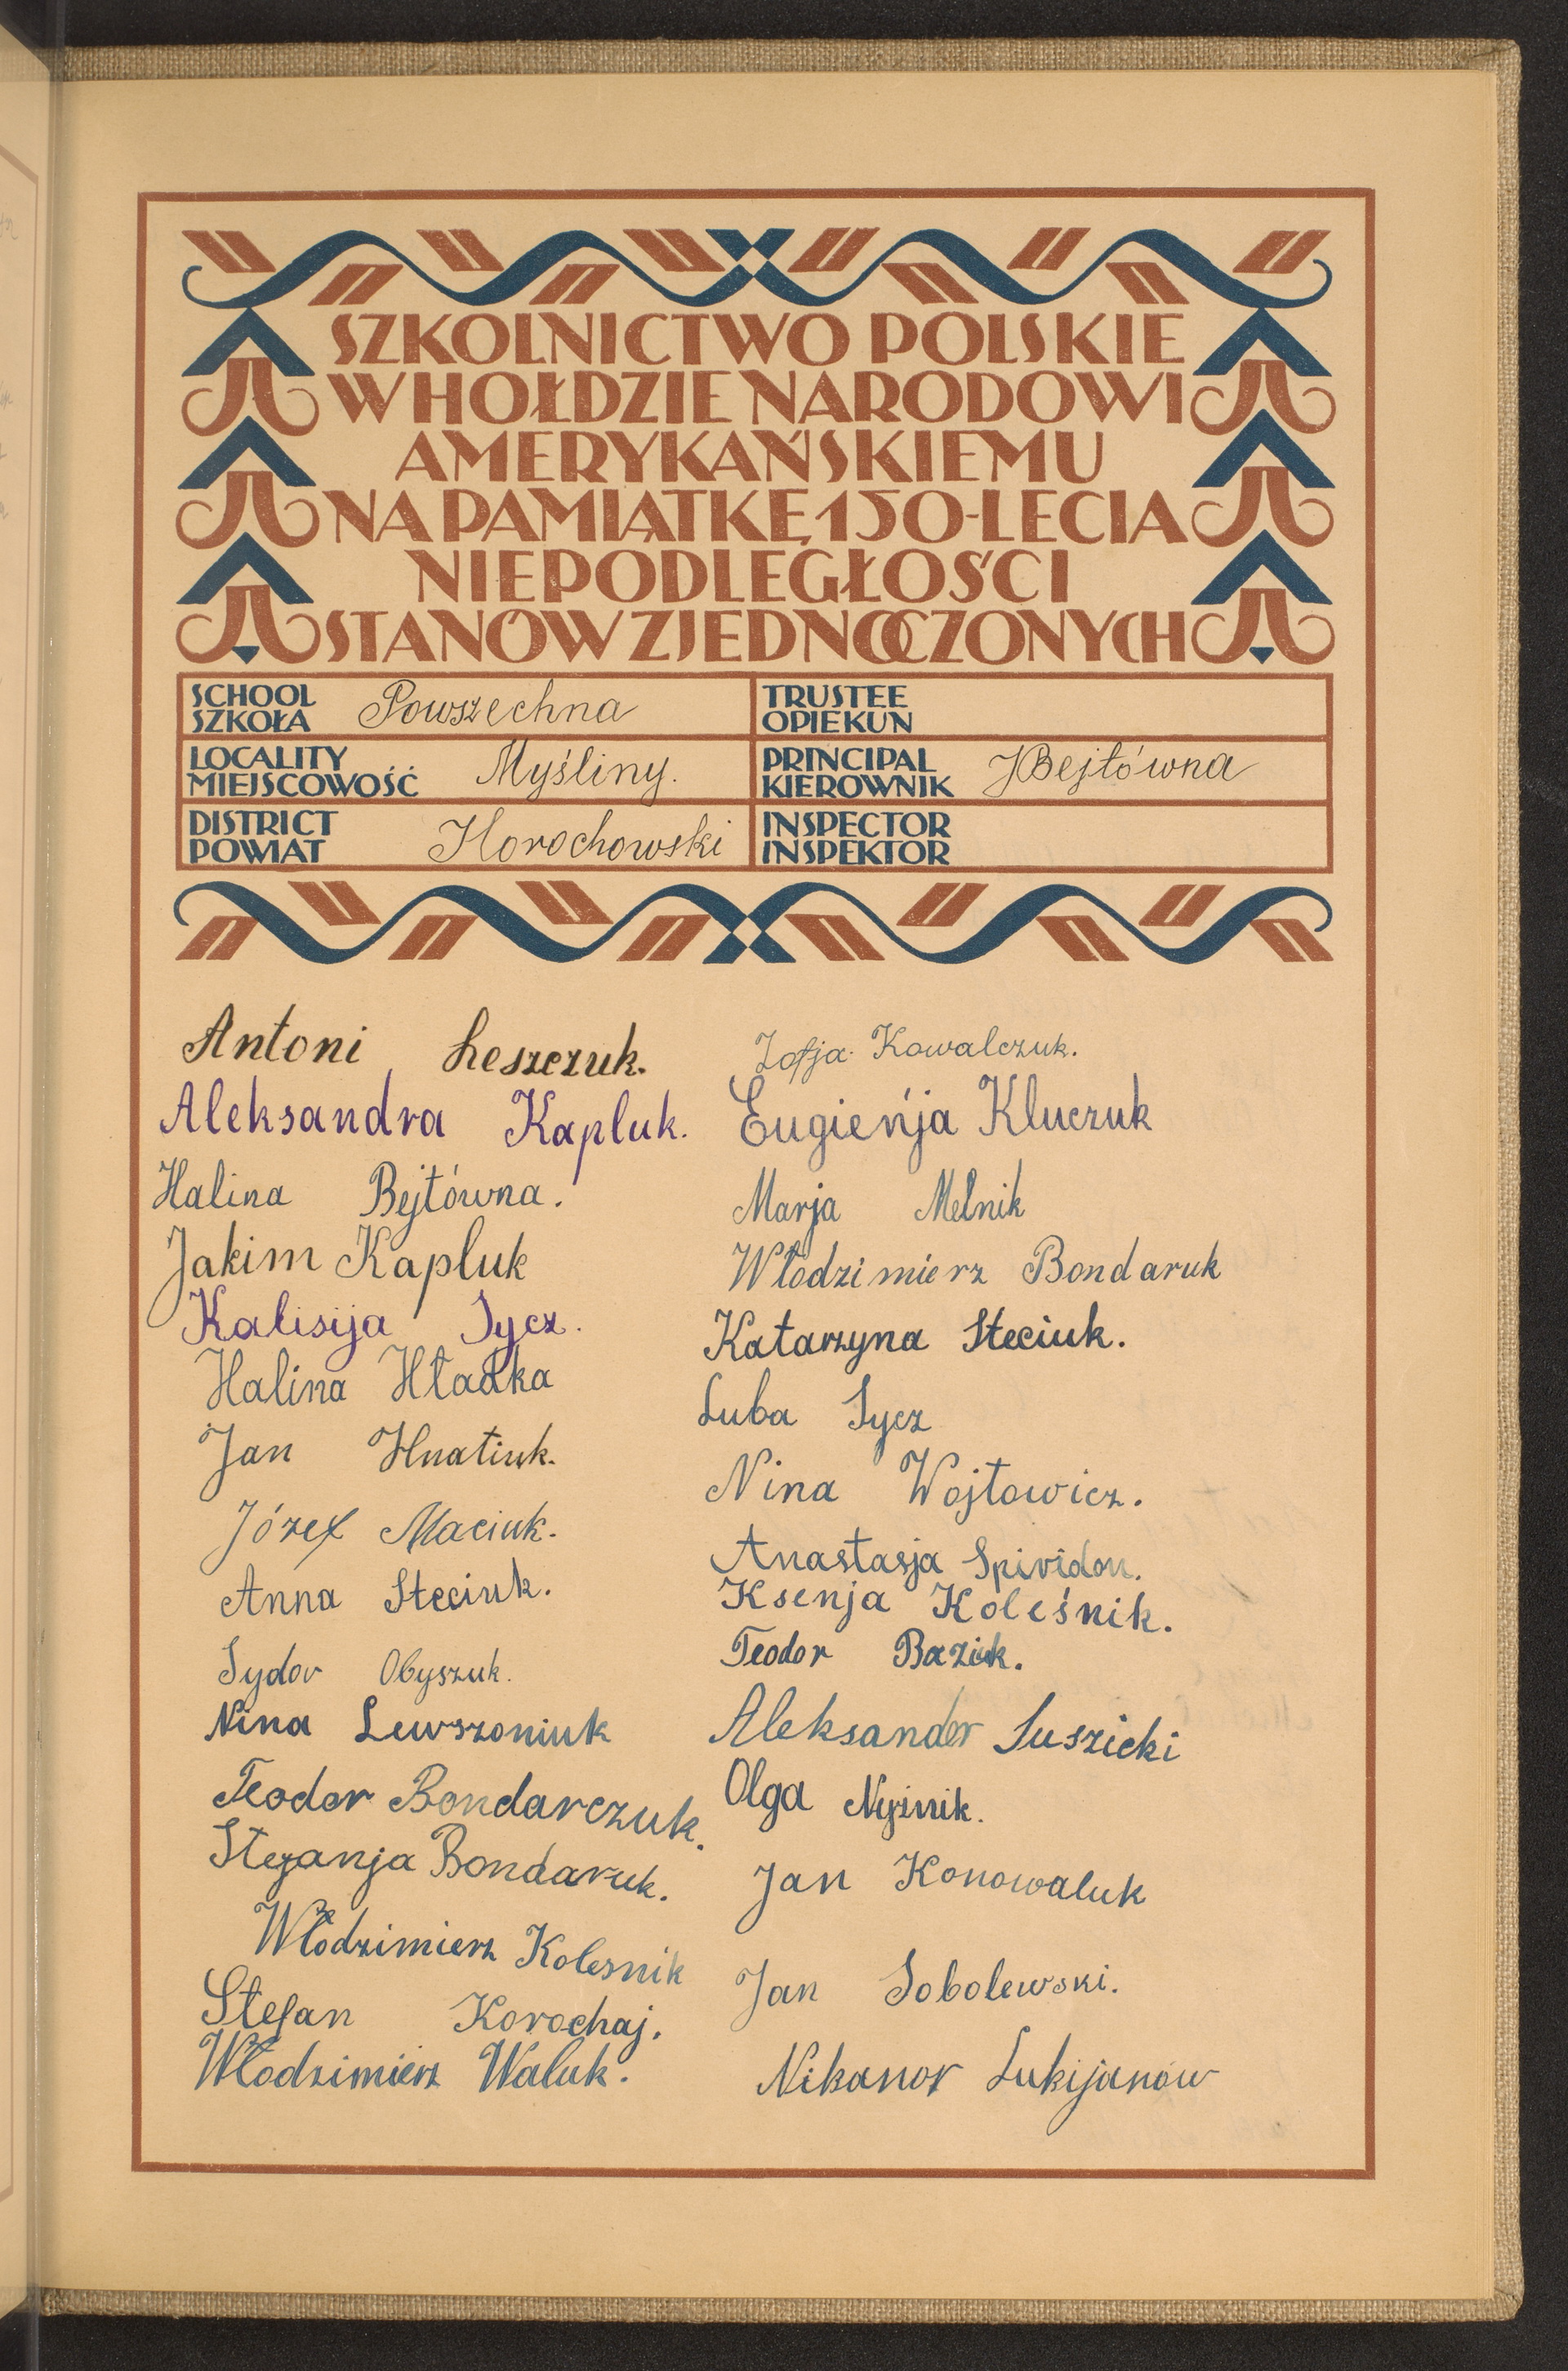 SZKOLNICTWO POLSKIE
W HOŁDZIE NARODOWI
AMERYKAŃSKIEMU
NA PAMIĄTKĘ 150-LECIA
NIEPODLEGŁOŚCI
STANÓW ZJEDNOCZONYCH
SCHOOL
SZKOŁA Powszechna
TRUSTEE
OPIEKUN
LOCALITY
MIEJSCOWOŚĆ Myśliny.
PRINCIPAL
KIEROWNIK JBejtówna
DISTRICT
POWIAT Horochowski
INSPECTOR
INSPEKTOR
Antoni Leszczuk.
Aleksandra Kapluk.
Halina Bejtówna.
Jakim Kapluk
Kalisija Sycz.
Halina Hładka
Jan Hnatiuk.
Józef Maciuk.
Anna Steciuk.
Sydor Obyszuk.
Nina Lewszoniuk
Teodor Bondarczuk.
Stefanja Bondaruk.
Włodzimierz Kolesnik
Stefan Korochaj.
Włodzimierz Waluk.
Zofja Kowalczuk.
Eugieńja Kluczuk
Marja Melnik
Włodzimierz Bondaruk
Katarzyna Steciuk.
Luba Sycz
Nina Wojtowicz.
Anastasja Spividon.
Ksenja Koleśnik.
Teodor Baziuk.
Aleksander Suszicki
Olga
Jan Konowaluk
Jan Sobolewski.
Nikanor Lukijanów